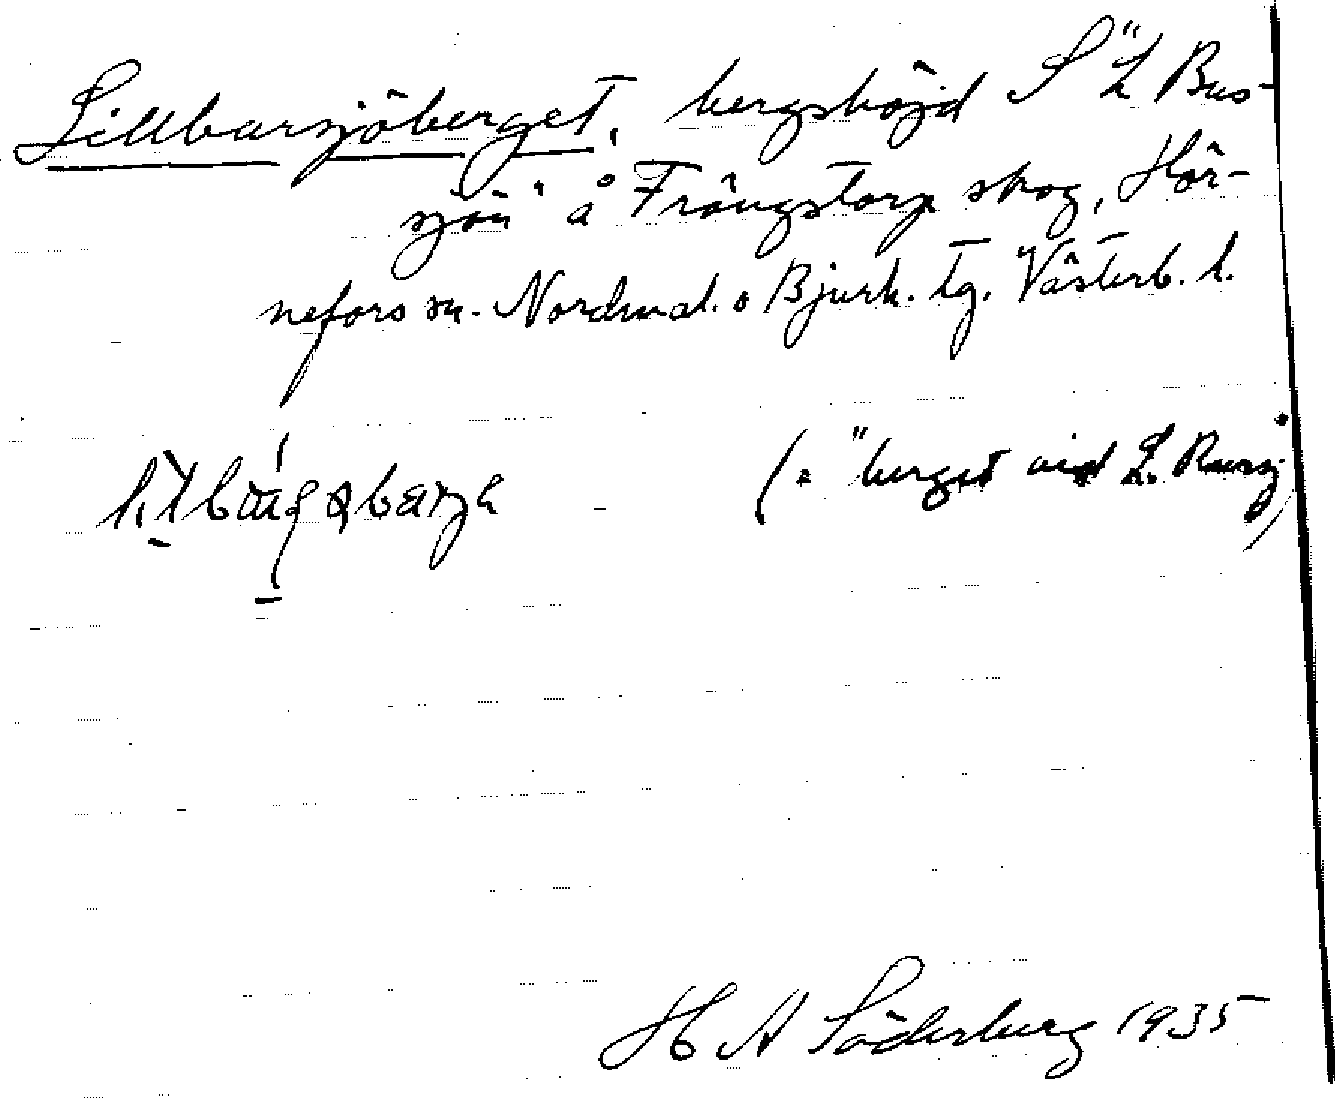 Lillbursjöberget, bergshöjd S "L Bus-
sjön" å Frängstorp skog, Hör-
nefors sn. Nordmal. o Bjurh. tg. Västerb. l.
(= "berget vid L.
H A Söderberg 1935